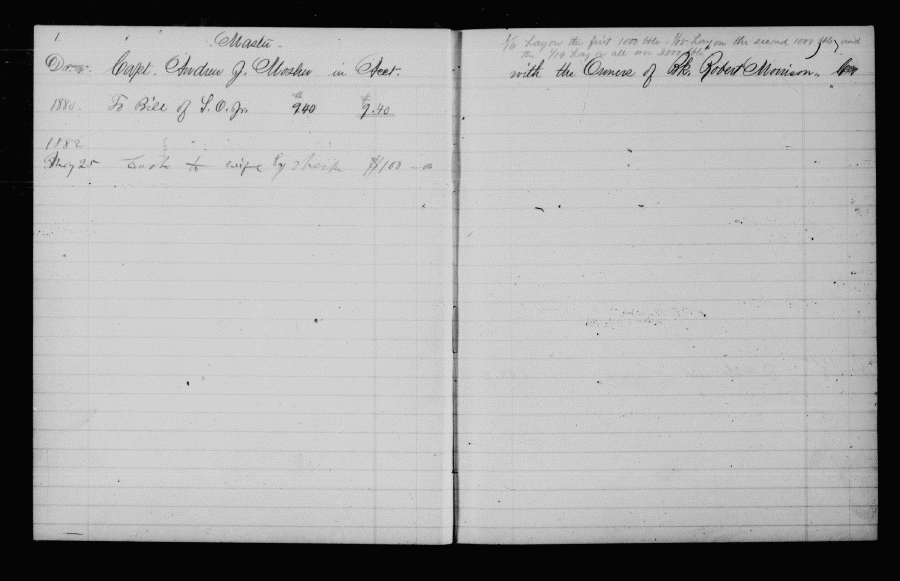 1
Master.
Dr. Capt. Andrew J. Mosher in Acct.
1880. To Bill of S. O. Jr. $9 40 $9.40
1882
May 25 Cash to wife by check $100 —
Lay on the first 1000 bbls - Lay on the second 1000 bbls, and
the Lay on all over 2000 bbls
with the Owners of Bk. Robert Morrison. Cr